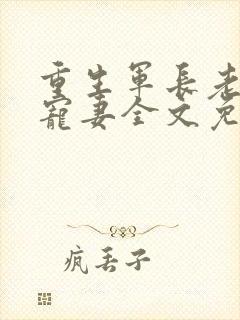 重生军长老
宠妻全文免
疯丢子